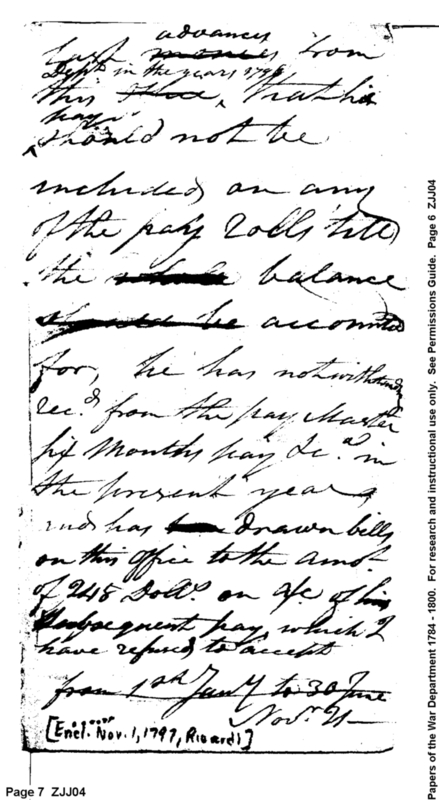 advances
last monies from
Dept. in the years 1796
this time, that his
pay
should not be
included on any
of the pay Rolls till
the whole balance
should be accounted
for, he has notwithstandg
recd. from the pay Master
six Months pay &ca. in
the present year,
and has drawn bills
on this office to the amot.
of 248 Dolls. on a/c of his
Subsequent pay, which I
have refused to accept
from 1st Jany to 30 June
Novr. 21
[Encl. Nov. 1, 1797, Ricardi]
Page 7 ZJJ04
Papers of the War Department 1784 - 1800. For research and instructional use only. See Permissions Guide. Page 6 ZJJ04